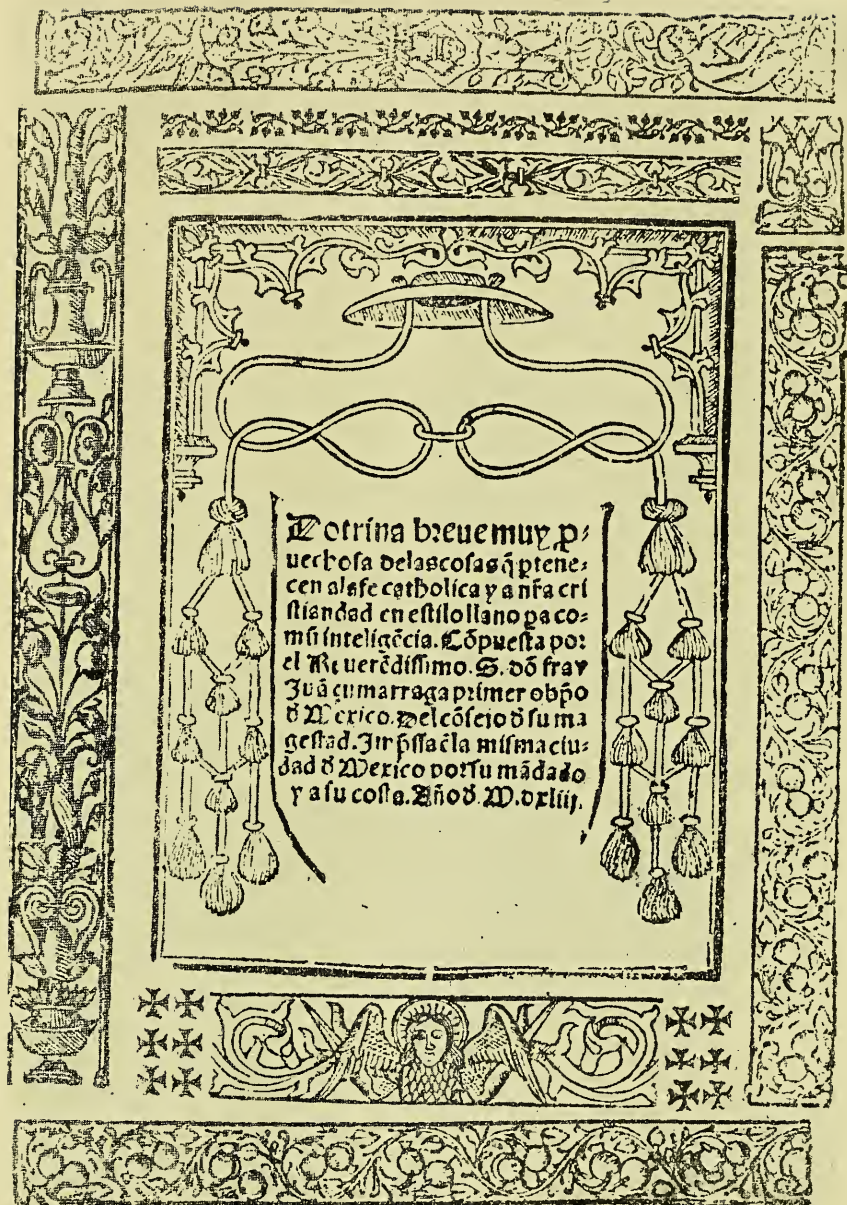 Dotrina breue muy ꝓ⸗
uechosa delas cosas q̃ ꝑtene⸗
cen ala fe catholica y a nr̃a cri
stiandad en estilo llano ꝑa co⸗
mũ inteligẽcia. Cõpuesta por
el Reuerẽdissimo. S. dõ fray
Juã çumarraga primer obp̃o
d̓ Mexico. Del cõsejo d̓ su ma
gestad. Imp̃ssa ẽla misma ciu⸗
dad d̓ Mexico por su mãdado
y a su costa. Año d̓. M.dxliij.